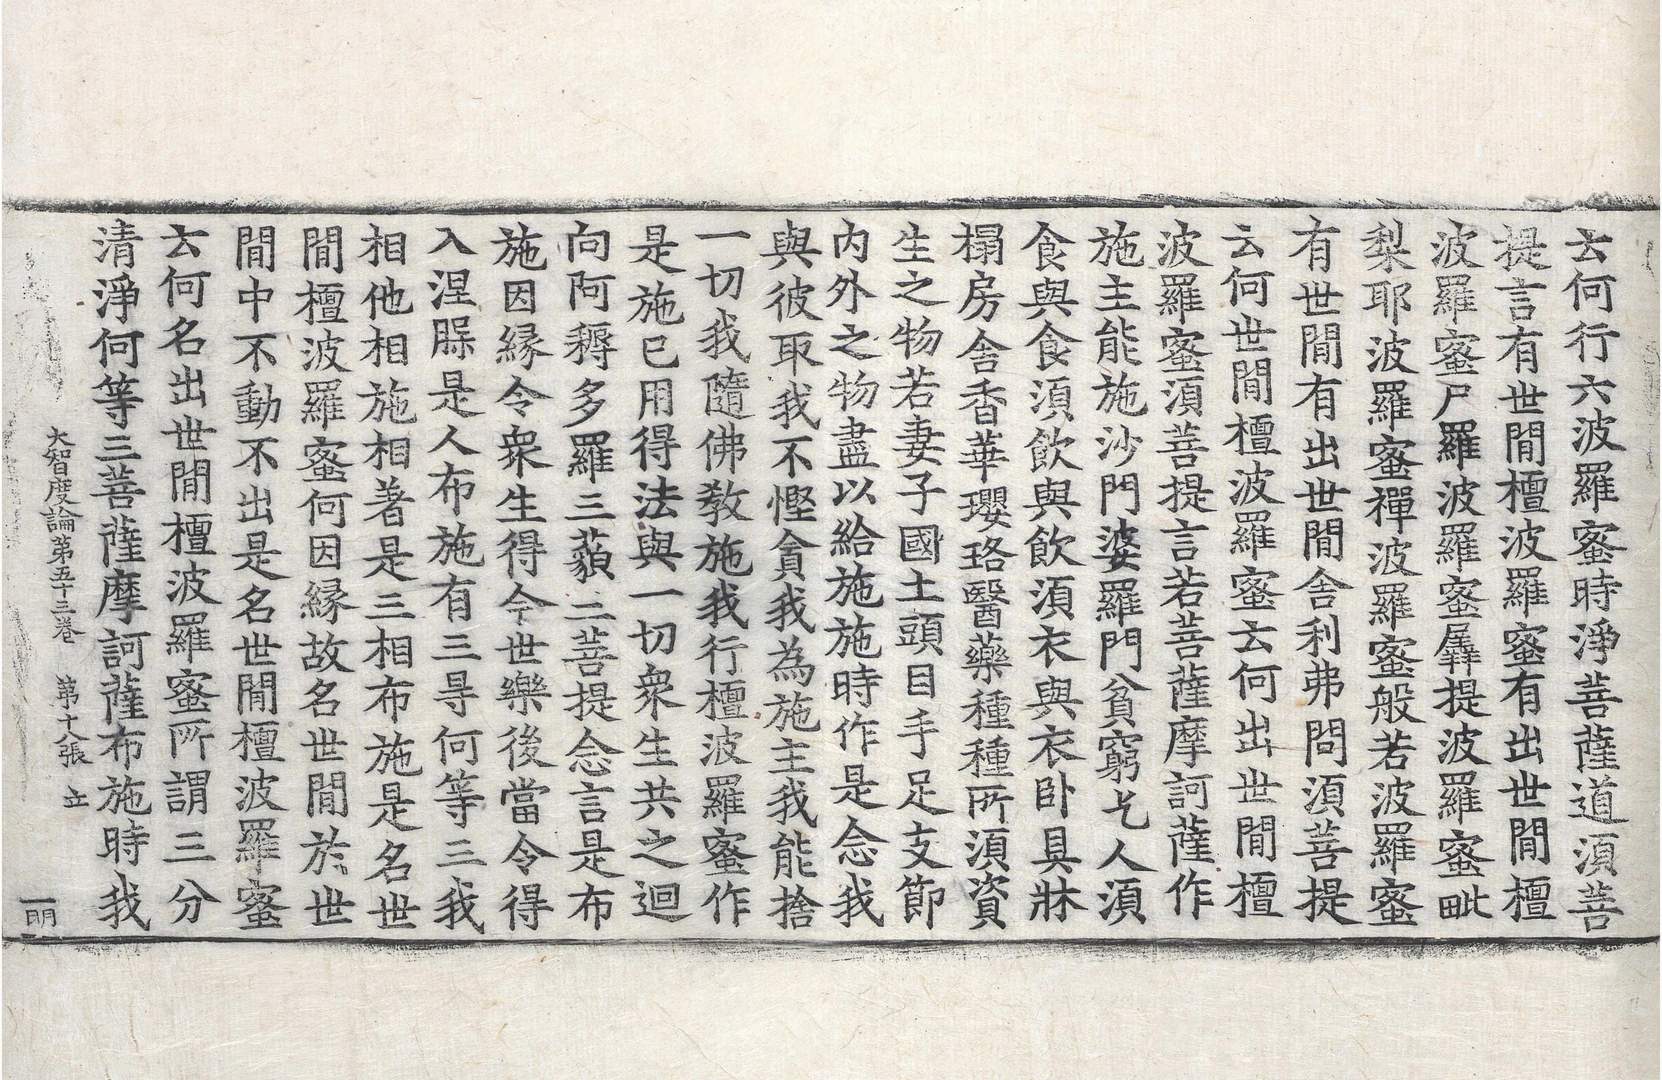 云何行六波羅蜜時淨菩薩道湏菩
提言有世間檀波羅蜜有出世間檀
波羅蜜尸羅波羅蜜羼提波羅蜜毗
梨耶波羅蜜禪波羅蜜般若波羅蜜
有世間有出世間舍利弗問湏菩提
云何世間檀波羅蜜云何出世間檀
波羅蜜湏菩提言若菩薩摩訶薩作
施主能施沙門婆羅門貧窮乞人湏
食與食湏飲與飲湏衣與衣卧具牀
榻房舍香華瓔珞醫藥種種所湏資
生之物若妻子國土頭目手足支節
內外之物盡以給施施時作是念我
與彼取我不慳貪我為施主我能捨
一切我隨佛教施我行檀波羅蜜作
是施已用得法與一切衆生共之迴
向阿耨多羅三藐三菩提念言是布
施因縁令衆生得今世樂後當令得
入涅槃是人布施有三㝵何等三我
相他相施相著是三相布施是名世
間檀波羅蜜何因縁故名世間於世
間中不動不出是名世間檀波羅蜜
云何名出世間檀波羅蜜所謂三分
清淨何等三菩薩摩訶薩布施時我
大智度論第五十三卷 第十八張 立